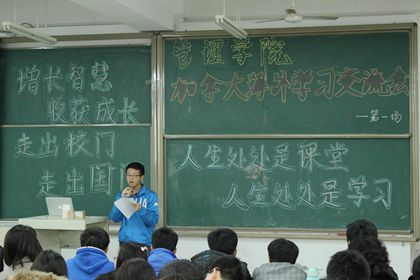 增长智慧
收获成长
走出校门
走出国门
管理学院
加拿大海外学习交流会
—第一场
人生处处是课堂
人生处处是学习